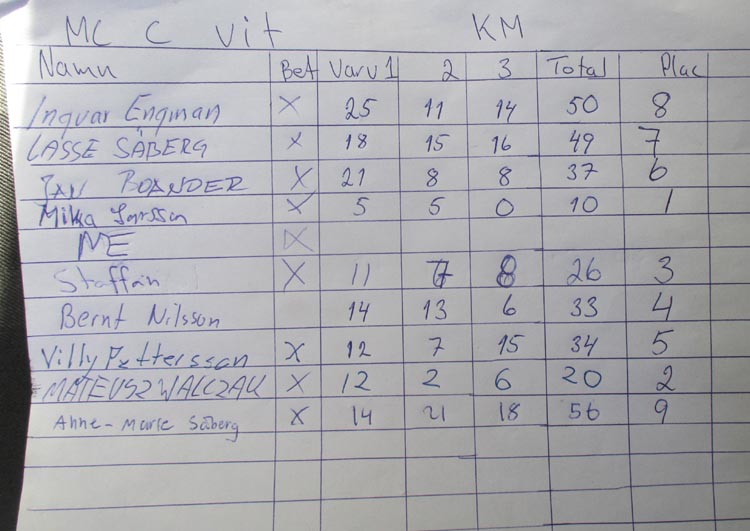 MC C vit KM
Namn Bet Varv 1 2 3 Total Plac
Ingvar Engman X 25 11 14 50 8
LASSE SÄBERG X 18 15 16 49 7
JAN BOANDER X 21 8 8 37 6
Mikka Larsson X 5 5 0 10 1
ME X
Staffan X 11 7 8 26 3
Bernt Nilsson 14 13 6 33 4
Villy Pettersson X 12 7 15 34 5
MATEUSZ WALCZAK X 12 2 6 20 2
Anne-Marie Säberg X 14 21 18 56 9